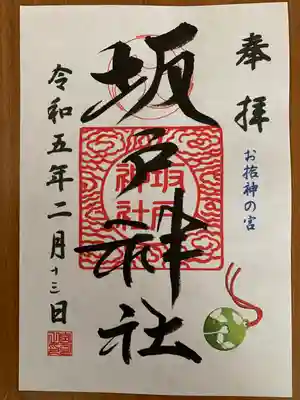 奉拝
の宮
坂戸神社
坂戸
神社
令和五年二月十三日